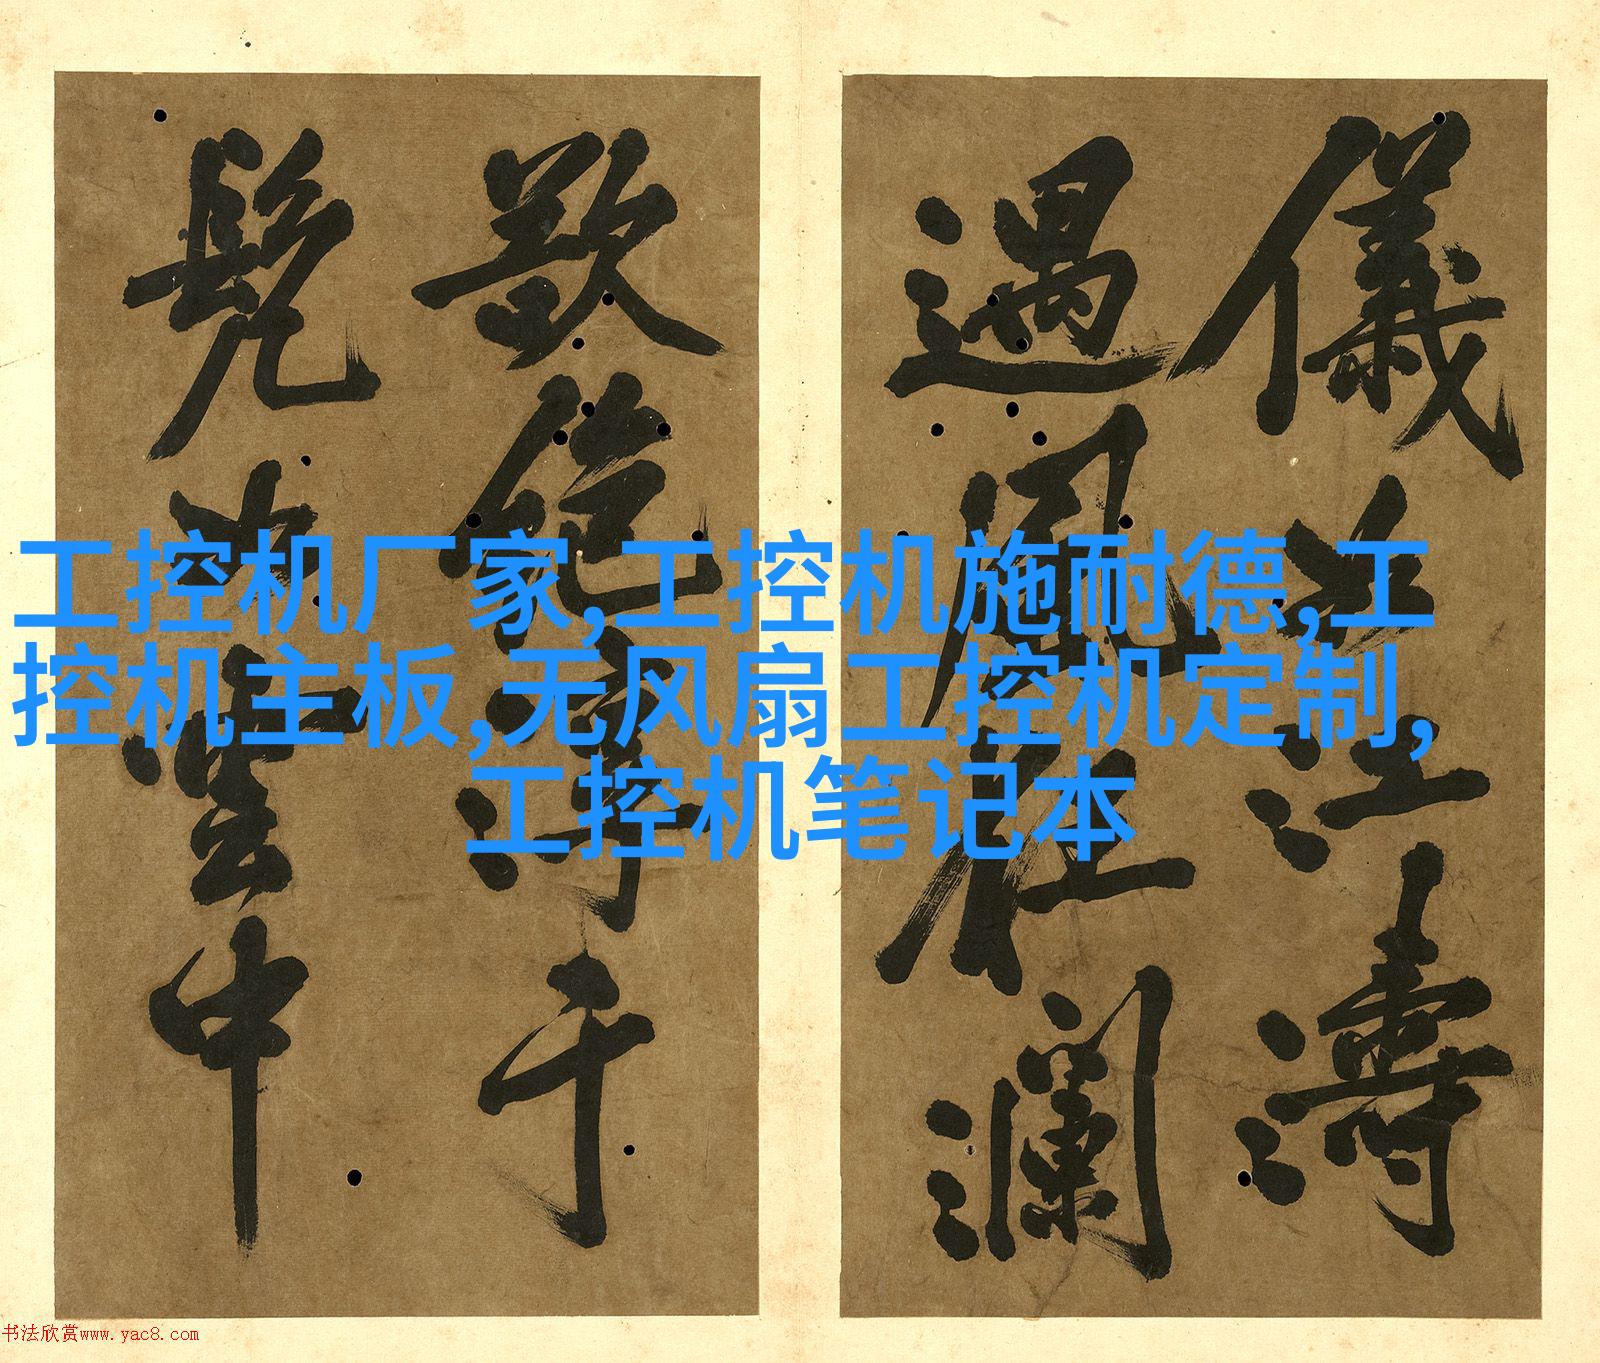 工控机厂家,工控机施耐德,工
控机主板,无风扇工控机定制,
工控机笔记本
儀江濤
遇風狂瀾
于
中
书法欣赏www.yac8.com